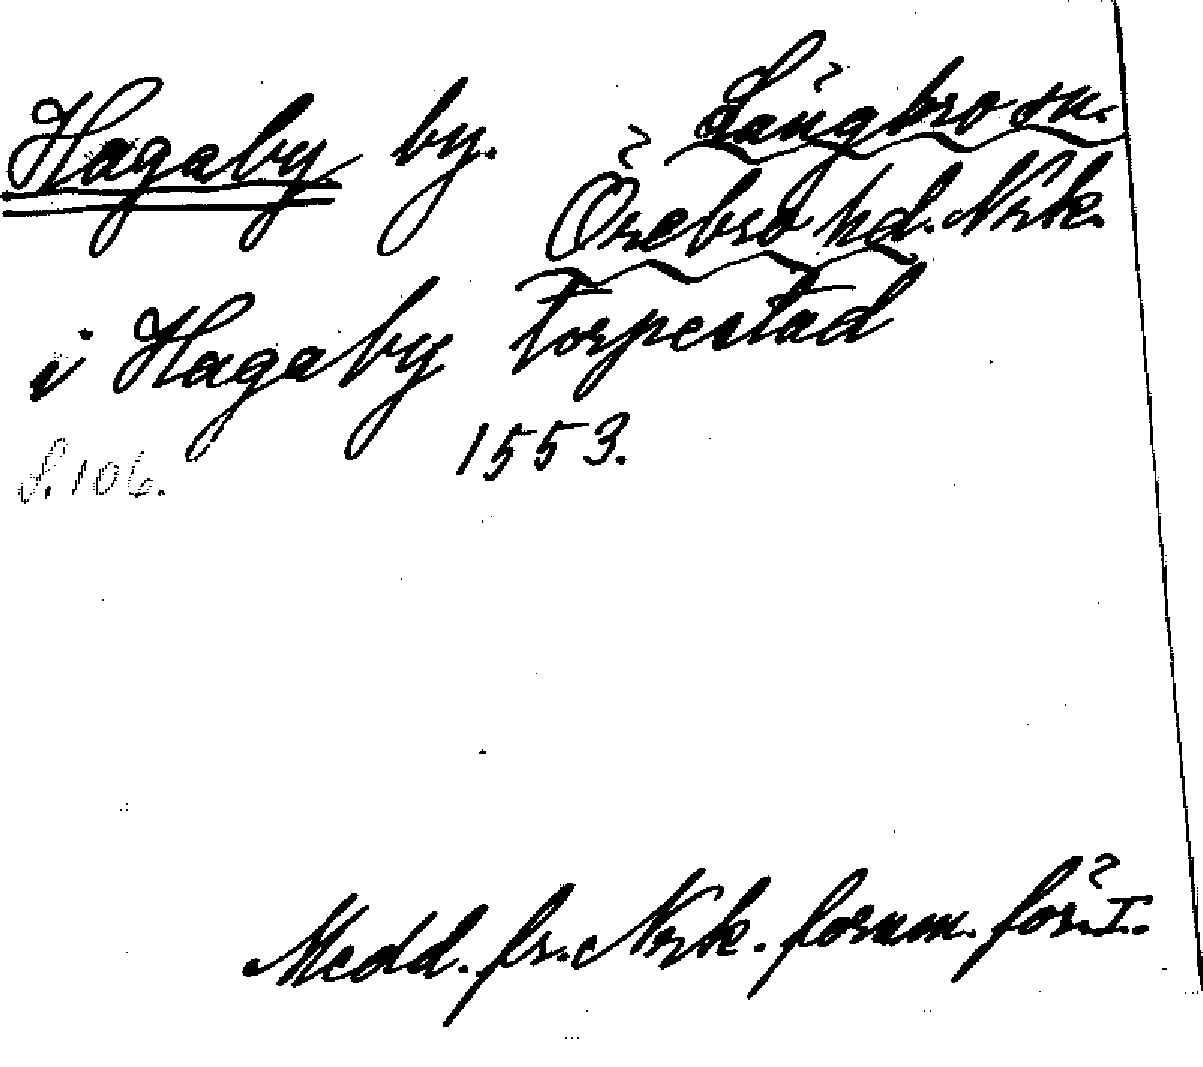 Hagaby by. Längbro sn.
Örebro hd. Nrk.
i Hagaby torpestad
1553.
S. 106.
Medd. fr. Nrk. fornm. för. I.